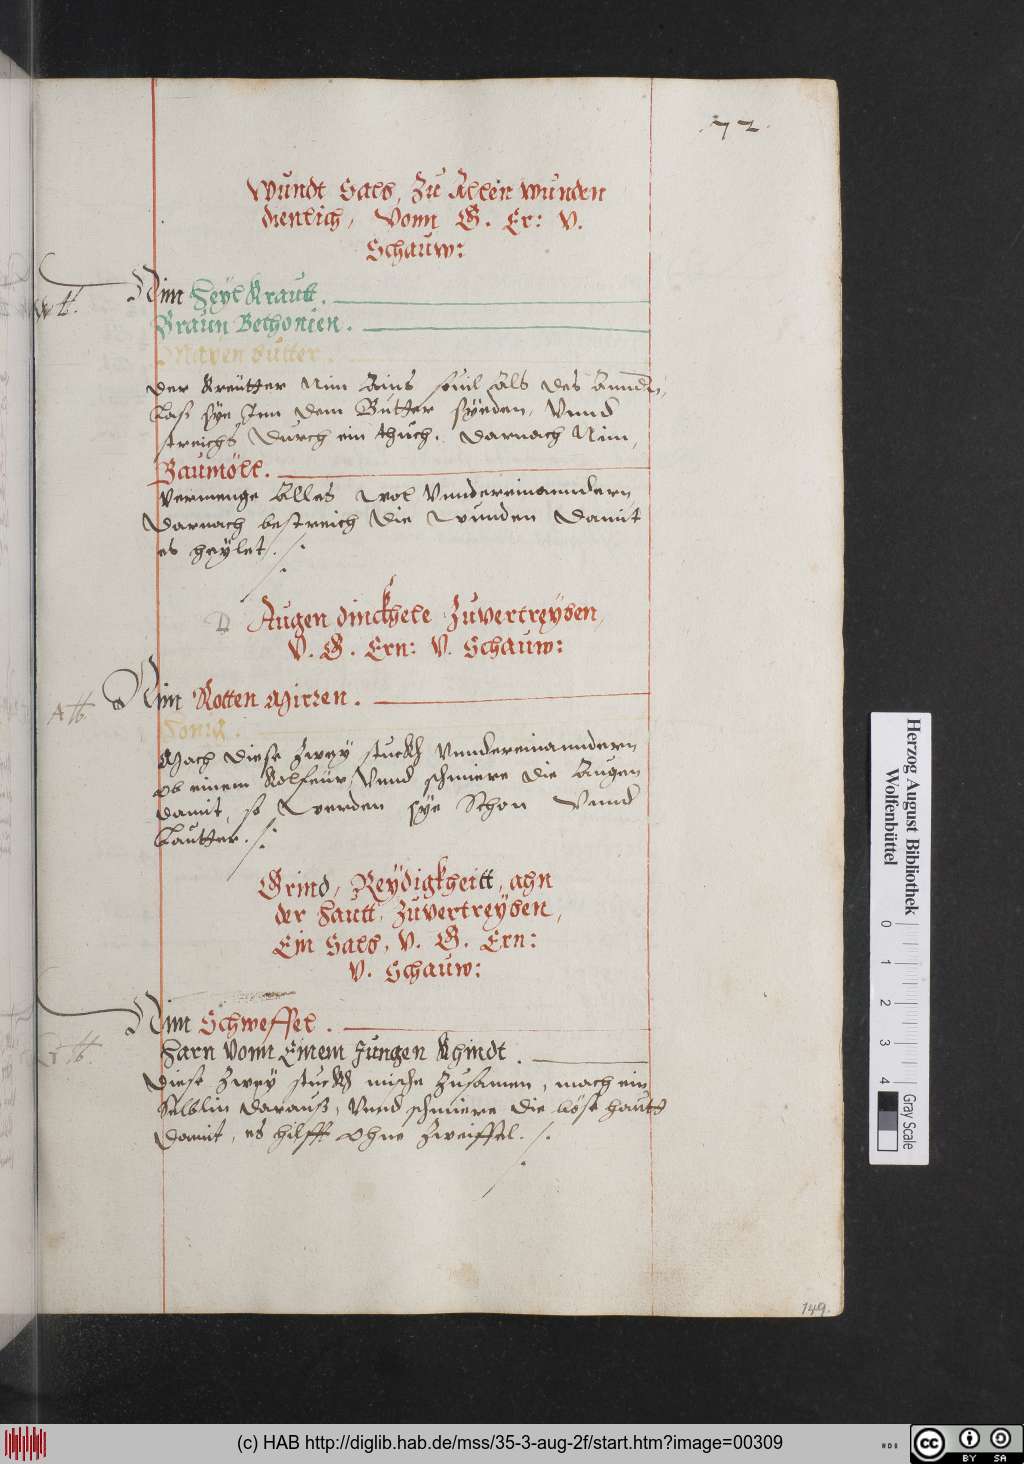 .72.
Wundt Salb, Zu Allen wunden
dienlich, Vonn G. Er: V.
Schauw:
Nim Heyl Krautt.
Braun Bethonien.
Mayen Butter.
der Kreütter Nim Ains souil Als des Anndrn,
Lass sye Inn dem Butter syeden, Vnnd
streichs durch ein thuch. Darnach Nim,
Baumöll.
Vermenge Alles wol Vnndereinanndern
Darnach bestreich die wunden Damit
es heylet ./.
Augen dinckhele Zuvertreyben,
V. G. Ern: V. Schauw:
Nim Rotten Mirren.
Honig.
Mach diese Zwey stuckh Vnndereinanndern
ob einem Kolfeür, Vnnd schmiere die Augen
damit, so werden sye Schon Vnnd
Lautter ./.
Grind, Reydigkheitt, ahn
der Hautt, Zuvertreyben,
Ein Salb, V. G. Ern:
V. Schauw:
Nim Schweffel.
Harn Vonn Einem Jungen Khindt.
Diese Zwey stuckh mische Zusamen, mach ein
Selblin darauß, Vnnd schmiere die böse hautt
damit, es hilfft ohne Zweiffel ./.
149.
Herzog August Bibliothek
Wolfenbüttel
0 1 2 3 4
Gray Scale
(c) HAB http://diglib.hab.de/mss/35-3-aug-2f/start.htm?image=00309
cc BY SA